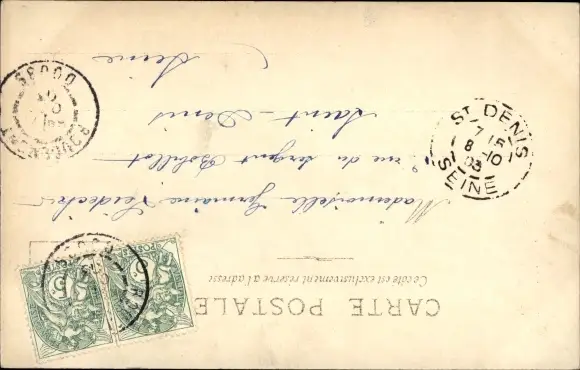 CARTE POSTALE
Ce côté est exclusivement réservé à l'adresse
Mademoiselle Germaine Leidecker
rue du Sergent Bobillot
Saint-Denis
Seine
ST DENIS
7 15
8-10
03
SEINE